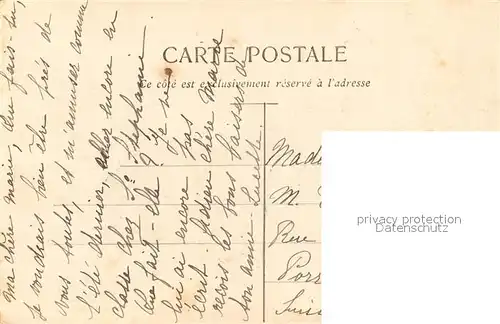 CARTE POSTALE
Ce côté est exclusivement réservé à l'adresse
ma chère marie, que fais tu,
Je voudrais bien être près de
vous toutes, et m'amuser comme
l'été dernier, aller encore en
classe chez Sr Stéphanie
Que fait-elle? Je ne
lui ai encore pas
écrit Adieu chère Marie
reçois les bons baisers de
ton amie Lucette
Mad
M.
Rue
Porr
Suis
privacy protection